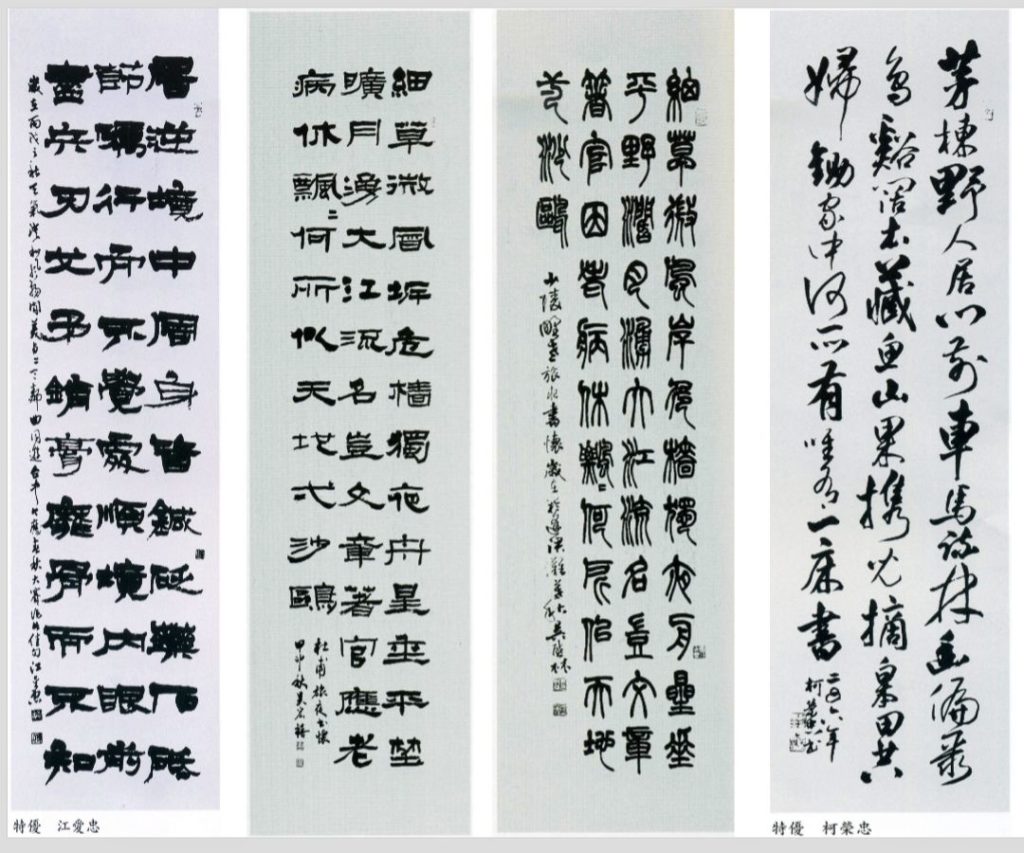 茅棟野人居門前車馬疏林幽偏聚
鳥谿闊本藏魚山果攜兒摘皋田共
婦鋤家中何所有唯有一床書
柯榮忠書
細草微風岸危檣獨夜舟星垂
平野闊月湧大江流名豈文章
著官因老病休飄〻何所似天地
弌沙鷗
細草微風岸危檣獨夜舟星垂平埜
曠月湧大江流名豈文章著官應老
病休飄〻何所似天地弌沙鷗
杜甫旅夜書懷
甲申秋
居逆境中周身皆鍼砭藥石砥
節礪行而不覺處順境內眼前
盡兵刃戈矛銷膏靡骨而不知
特優 江愛忠
特優 柯榮忠